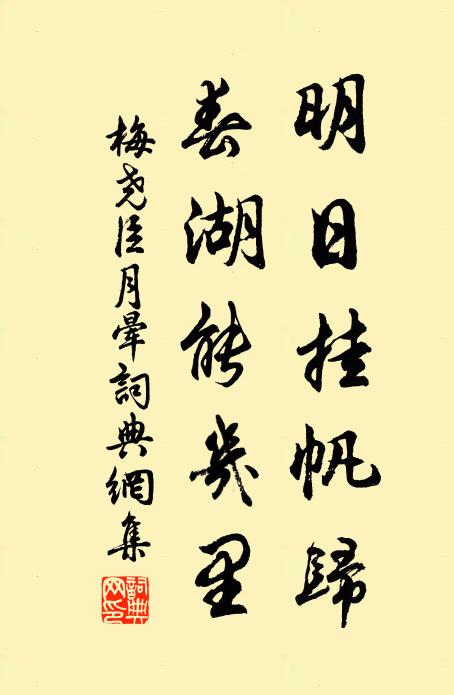 明日挂帆歸
春湖能幾里
梅尧臣月暈詞典網集
詞典網印